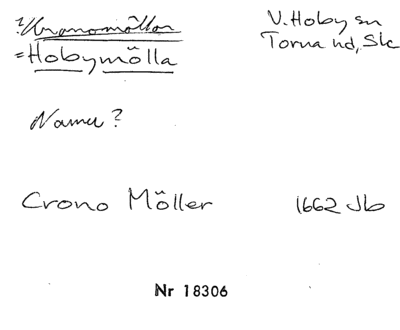 ? Kronomöllor
= Hobymölla
V. Hoby sn
Torna hd, Sk
Namn?
Crono Möller
1662 Jb
Nr 18306